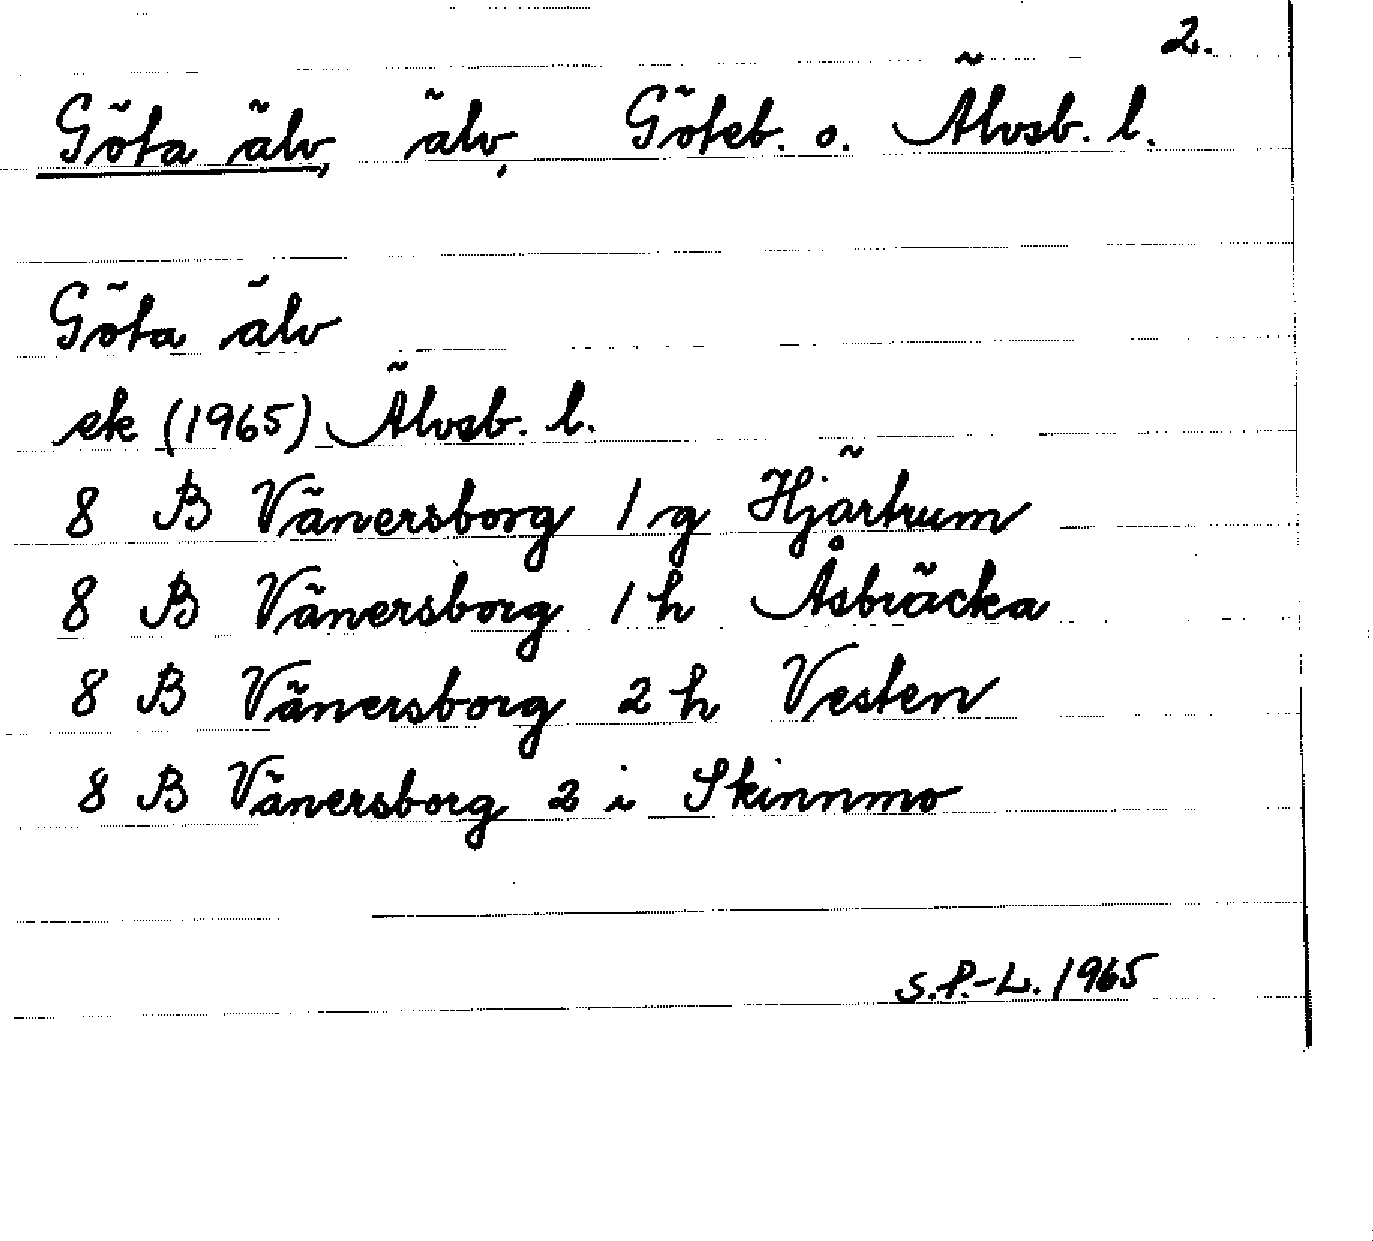 2.
Göta älv, älv, Göteb. o. Älvsb. l.
Göta älv
ek (1965) Älvsb. l.
8 B Vänersborg 1 g Hjärtrum
8 B Vänersborg 1 h Åsbräcka
8 B Vänersborg 2 h Vesten
8 B Vänersborg 2 i Skinnmo
S.P.-L. 1965